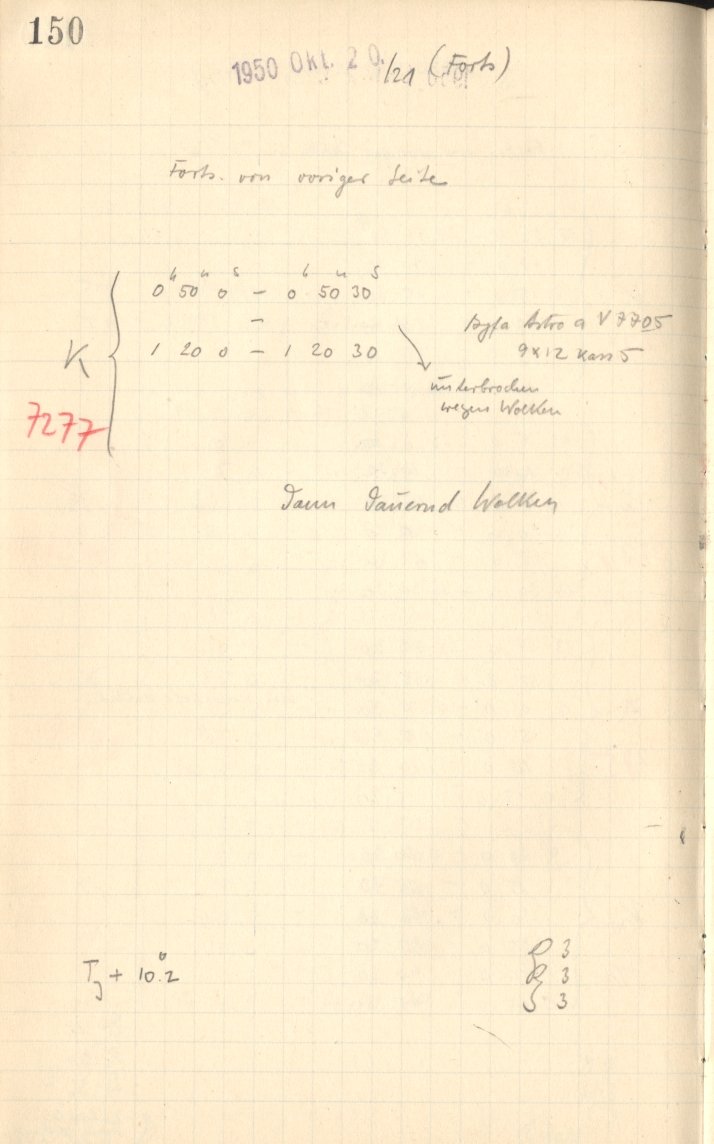 150
1950 Okt. 20./21 (Forts)
Forts. von voriger Seite
h m s h m s
0 50 0 – 0 50 30
–
K
1 20 0 – 1 20 30
Agfa Astro a V 7705
9x12 Kass 5
unterbrochen
wegen Wolken
7277
Dann dauernd Wolken
TJ + 10.°2
3
R 3
S 3